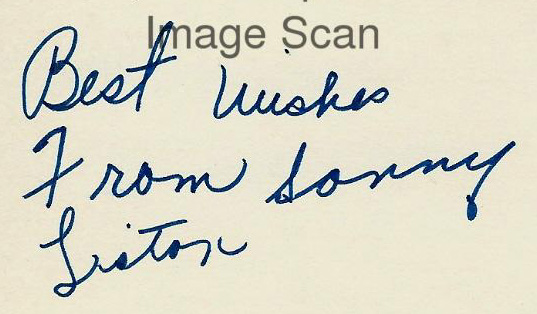 Image Scan
Best Wishes
From Sonny
Liston